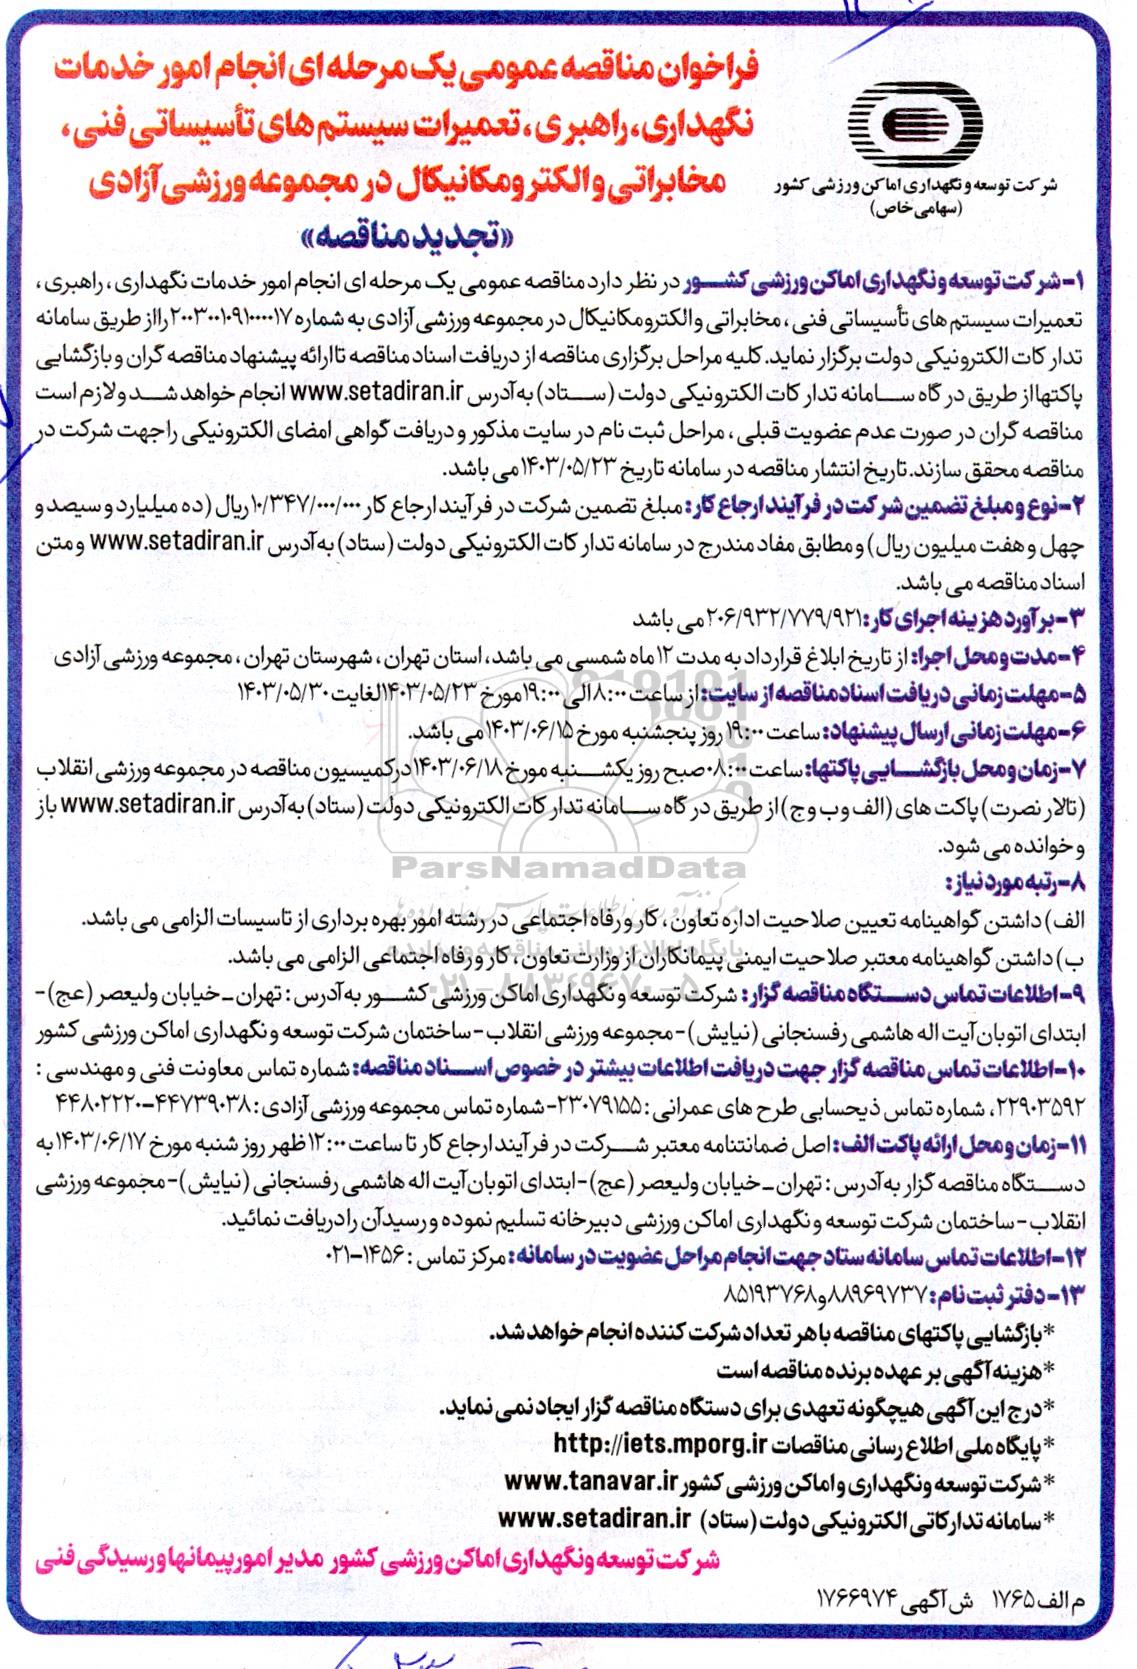 فراخوان مناقصه عمومی یک مرحله ای انجام امور خدمات
نگهداری، راهبری، تعمیرات سیستم های تأسیساتی فنی،
مخابراتی و الکترومکانیکال در مجموعه ورزشی آزادی
«تجدید مناقصه»
شرکت توسعه و نگهداری اماکن ورزشی کشور
(سهامی خاص)
۱- شرکت توسعه و نگهداری اماکن ورزشی کشور در نظر دارد مناقصه عمومی یک مرحله ای انجام امور خدمات نگهداری، راهبری،
تعمیرات سیستم های تأسیساتی فنی، مخابراتی و الکترومکانیکال در مجموعه ورزشی آزادی به شماره ۲۰۰۳۰۰۱۰۹۱۰۰۰۰۱۷ را از طریق سامانه
تدارکات الکترونیکی دولت برگزار نماید. کلیه مراحل برگزاری مناقصه از دریافت اسناد مناقصه تا ارائه پیشنهاد مناقصه گران و بازگشایی
پاکتها از طریق درگاه سامانه تدارکات الکترونیکی دولت (ستاد) به آدرس www.setadiran.ir انجام خواهد شد و لازم است
مناقصه گران در صورت عدم عضویت قبلی، مراحل ثبت نام در سایت مذکور و دریافت گواهی امضای الکترونیکی را جهت شرکت در
مناقصه محقق سازند. تاریخ انتشار مناقصه در سامانه تاریخ ۱۴۰۳/۰۵/۲۳ می باشد.
۲- نوع و مبلغ تضمین شرکت در فرآیند ارجاع کار: مبلغ تضمین شرکت در فرآیند ارجاع کار ۱۰/۳۴۷/۰۰۰/۰۰۰ ریال (ده میلیارد و سیصد و
چهل و هفت میلیون ریال) و مطابق مفاد مندرج در سامانه تدارکات الکترونیکی دولت (ستاد) به آدرس www.setadiran.ir و متن
اسناد مناقصه می باشد.
۳- برآورد هزینه اجرای کار: ۲۰۶/۹۳۲/۷۷۹/۹۲۱ می باشد
۴- مدت و محل اجرا: از تاریخ ابلاغ قرارداد به مدت ۱۲ ماه شمسی می باشد، استان تهران، شهرستان تهران، مجموعه ورزشی آزادی
۵- مهلت زمانی دریافت اسناد مناقصه از سایت: از ساعت ۸:۰۰ الی ۱۹:۰۰ مورخ ۱۴۰۳/۰۵/۲۳ لغایت ۱۴۰۳/۰۵/۳۰
۶- مهلت زمانی ارسال پیشنهاد: ساعت ۱۹:۰۰ روز پنجشنبه مورخ ۱۴۰۳/۰۶/۱۵ می باشد.
۷- زمان و محل بازگشایی پاکتها: ساعت ۰۸:۰۰ صبح روز یکشنبه مورخ ۱۴۰۳/۰۶/۱۸ در کمیسیون مناقصه در مجموعه ورزشی انقلاب
(تالار نصرت) پاکت های (الف و ب و ج) از طریق درگاه سامانه تدارکات الکترونیکی دولت (ستاد) به آدرس www.setadiran.ir باز
و خوانده می شود.
ParsNamadData
۸- رتبه مورد نیاز:
الف) داشتن گواهینامه تعیین صلاحیت اداره تعاون، کار و رفاه اجتماعی در رشته امور بهره برداری از تاسیسات الزامی می باشد.
ب) داشتن گواهینامه معتبر صلاحیت ایمنی پیمانکاران از وزارت تعاون، کار و رفاه اجتماعی الزامی می باشد.
پایگاه اطلاع رسانی مناقصه و مزایده
۰۲۱-۸۸۳۴۹۶۷۰-۵
۹- اطلاعات تماس دستگاه مناقصه گزار: شرکت توسعه و نگهداری اماکن ورزشی کشور به آدرس: تهران ـ خیابان ولیعصر (عج)-
ابتدای اتوبان آیت اله هاشمی رفسنجانی (نیایش)- مجموعه ورزشی انقلاب - ساختمان شرکت توسعه و نگهداری اماکن ورزشی کشور
۱۰- اطلاعات تماس مناقصه گزار جهت دریافت اطلاعات بیشتر در خصوص اسناد مناقصه: شماره تماس معاونت فنی و مهندسی:
۲۲۹۰۳۵۹۲، شماره تماس ذیحسابی طرح های عمرانی: ۲۳۰۷۹۱۵۵- شماره تماس مجموعه ورزشی آزادی: ۴۴۷۳۹۰۳۸-۴۴۸۰۲۲۲۰
۱۱- زمان و محل ارائه پاکت الف: اصل ضمانتنامه معتبر شرکت در فرآیند ارجاع کار تا ساعت ۱۲:۰۰ ظهر روز شنبه مورخ ۱۴۰۳/۰۶/۱۷ به
دستگاه مناقصه گزار به آدرس: تهران ـ خیابان ولیعصر (عج)- ابتدای اتوبان آیت اله هاشمی رفسنجانی (نیایش)- مجموعه ورزشی
انقلاب - ساختمان شرکت توسعه و نگهداری اماکن ورزشی دبیرخانه تسلیم نموده و رسید آن را دریافت نمائید.
۱۲- اطلاعات تماس سامانه ستاد جهت انجام مراحل عضویت در سامانه: مرکز تماس: ۱۴۵۶-۰۲۱
۱۳- دفتر ثبت نام: ۸۸۹۶۹۷۳۷ و ۸۵۱۹۳۷۶۸
*بازگشایی پاکتهای مناقصه با هر تعداد شرکت کننده انجام خواهد شد.
*هزینه آگهی بر عهده برنده مناقصه است
*درج این آگهی هیچگونه تعهدی برای دستگاه مناقصه گزار ایجاد نمی نماید.
*پایگاه ملی اطلاع رسانی مناقصات http://iets.mporg.ir
*شرکت توسعه و نگهداری و اماکن ورزشی کشور www.tanavar.ir
*سامانه تدارکاتی الکترونیکی دولت (ستاد) www.setadiran.ir
شرکت توسعه و نگهداری اماکن ورزشی کشور مدیر امور پیمانها و رسیدگی فنی
م الف ۱۷۶۵ ش آگهی ۱۷۶۶۹۷۴